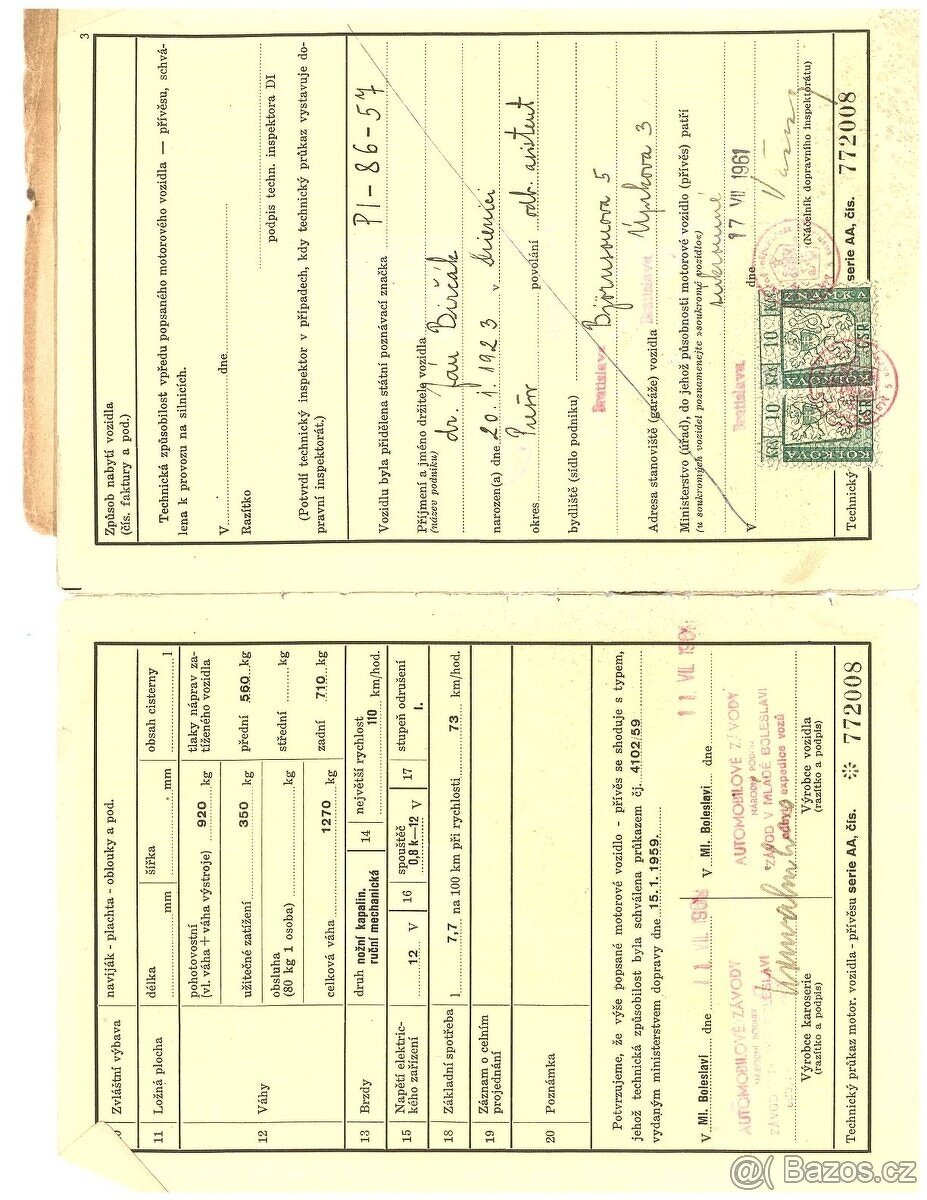 Zvláštní výbava
naviják - plachta - oblouky a pod.
11 Ložná plocha délka mm šířka mm obsah cisterny l
12 Váhy
pohotovostní
(vl. váha + váha výstroje) 920 kg
užitečné zatížení 350 kg
obsluha
(80 kg 1 osoba) kg
celková váha 1270 kg
tlaky náprav za-
tíženého vozidla
přední 560 kg
střední kg
zadní 710 kg
13 Brzdy druh nožní kapalin.
ruční mechanická
14 největší rychlost
110 km/hod.
15 Napětí elektric-
kého zařízení 12 V
16 spouštěč
0,8 k—12 V
17 stupeň odrušení
I.
18 Základní spotřeba l 7,7 na 100 km při rychlosti 73 km/hod.
19 Záznam o celním
projednání
20 Poznámka
Potvrzujeme, že výše popsané motorové vozidlo - přívěs se shoduje s typem,
jehož technická způsobilost byla schválena průkazem čj. 4102/59
vydaným ministerstvem dopravy dne 15.1.1959.
V Ml. Boleslavi dne
V Ml. Boleslavi dne
AUTOMOBILOVÉ ZÁVODY
AUTOMOBILOVÉ ZÁVODY
NÁRODNÍ PODNIK
ZÁVOD V MLADÉ BOLESLAVI
odbyt a expedice vozů
Výrobce karoserie
(razítko a podpis)
Výrobce vozidla
(razítko a podpis)
Technický průkaz motor. vozidla - přívěsu serie AA, čís. 772008
3
Způsob nabytí vozidla
(čís. faktury a pod.)
Technická způsobilost vpředu popsaného motorového vozidla — přívěsu, schvá-
lena k provozu na silnicích.
V dne
Razítko
podpis techn. inspektora DI
(Potvrdí technický inspektor v případech, kdy technický průkaz vystavuje do-
pravní inspektorát.)
Vozidlu byla přidělena státní poznávací značka PI-86-57
Příjmení a jméno držitele vozidla
(název podniku) dr. Ján Birčák
narozen(a) dne 20. 1. 1923 v
okres povolání odb. asistent
bydliště (sídlo podniku) Bratislava Björnsonova 5
Adresa stanoviště (garáže) vozidla Bratislava 3
Ministerstvo (úřad), do jehož působnosti motorové vozidlo (přívěs) patří
(u soukromých vozidel poznamenejte »soukromé vozidlo«) súkromné
V Bratislava dne 17 VII 1961
(Náčelník dopravního inspektorátu)
Kčs 10 10 Kčs
KOLKOVÁ ZNÁMKA
ČSR ČSR
Technický serie AA, čís. 772008
@( Bazos.cz